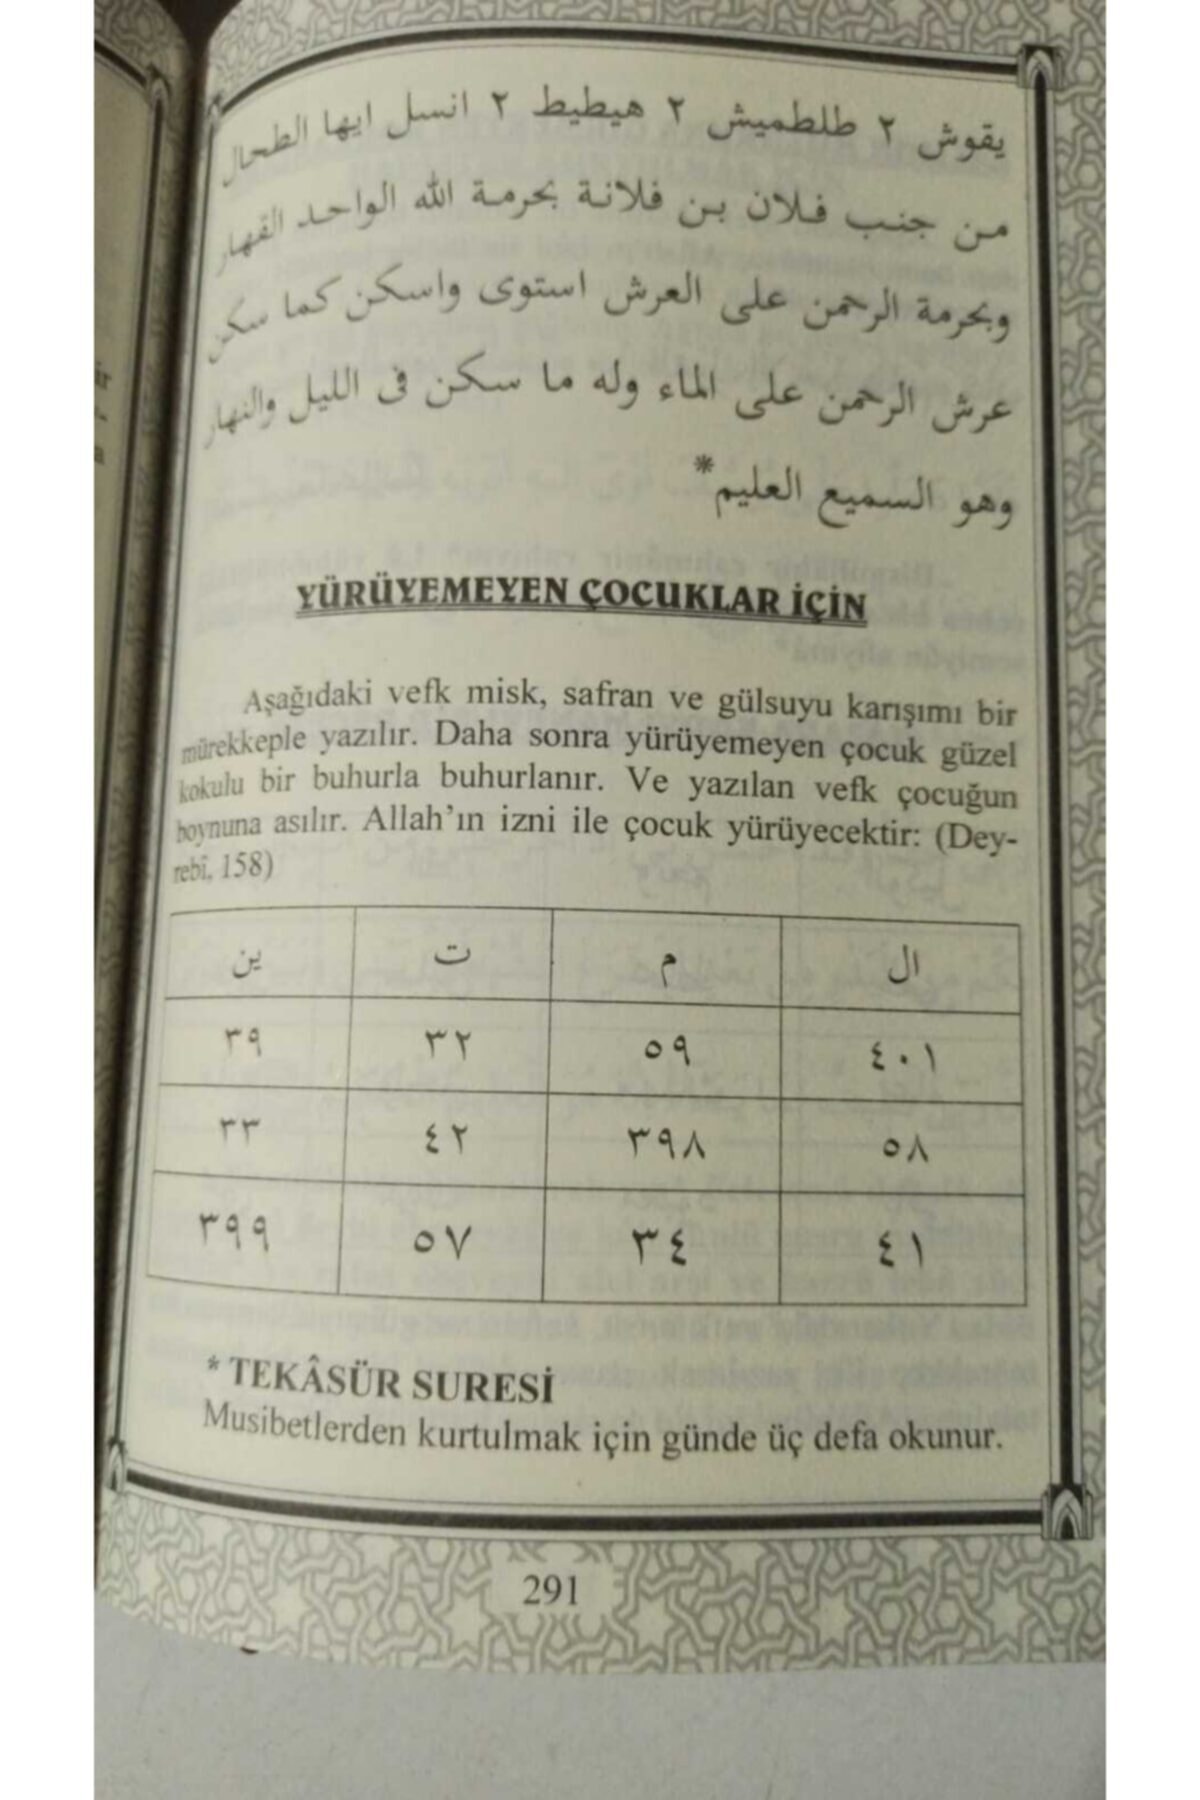 يقوش ٢ طلطميش ٢ هيطيط ٢ انسل ايها الطحال
من جنب فلان بن فلانة بحرمة الله الواحد القهار
وبحرمة الرحمن على العرش استوى واسكن كما سكن
عرش الرحمن على الماء وله ما سكن فى الليل والنهار
وهو السميع العليم*
YÜRÜYEMEYEN ÇOCUKLAR İÇİN
Aşağıdaki vefk misk, safran ve gülsuyu karışımı bir
mürekkeple yazılır. Daha sonra yürüyemeyen çocuk güzel
kokulu bir buhurla buhurlanır. Ve yazılan vefk çocuğun
boynuna asılır. Allah'ın izni ile çocuk yürüyecektir: (Dey-
rebî, 158)
ال م ت ين
٤٠١ ٥٩ ٣٢ ٣٩
٥٨ ٣٩٨ ٤٢ ٣٣
٤١ ٣٤ ٥٧ ٣٩٩
* TEKÂSÜR SURESİ
Musibetlerden kurtulmak için günde üç defa okunur.
291